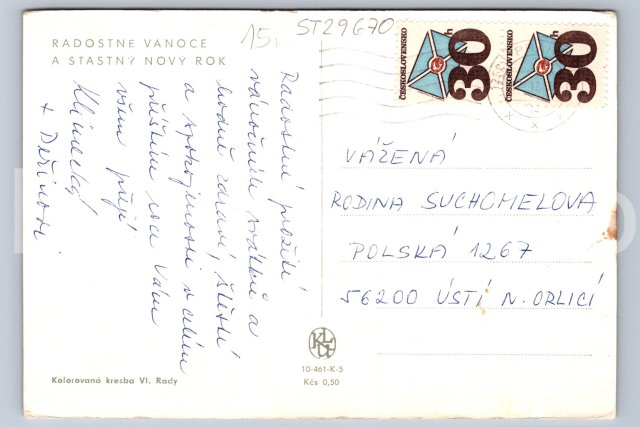 RADOSTNÉ VÁNOCE
A ŠŤASTNÝ NOVÝ ROK
15,-
ST29670
ČESKOSLOVENSKO
30h
ČESKOSLOVENSKO
30h
Radostné prožití
vánočních svátků a
hodně zdraví, štěstí
a spokojenosti v celém
příštím roce Vám
všem přejí
+ Děti
VÁŽENÁ
RODINA SUCHOMELOVA
POLSKÁ 1267
56200 ÚSTÍ N. ORLICÍ
10-461-K-5
Kčs 0,50
Kolorovaná kresba Vl. Rady